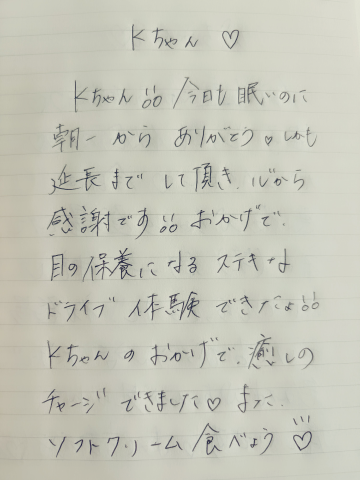 Kちゃん ♡
Kちゃん!! 今日も眠いのに
朝一から ありがとう♡しかも
延長まで して頂き、心から
感謝です!! おかげで、
目の保養になる ステキな
ドライブ 体験 できたよ!!
Kちゃんの おかげで、癒しの
チャージ できました♡ また、
ソフトクリーム 食べよう ♡